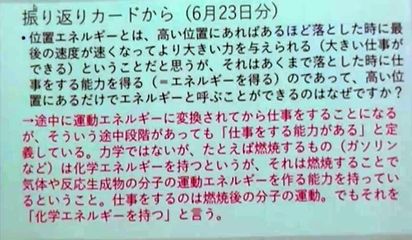 振り返りカードから（6月23日分）
・位置エネルギーとは、高い位置にあればあるほど落とした時に最
後の速度が速くなってより大きい力を与えられる（大きい仕事が
できる）ということだと思うが、それはあくまで落とした時に仕
事をする能力を得る（＝エネルギーを得る）のであって、高い位
置にあるだけでエネルギーと呼ぶことができるのはなぜですか？
→途中に運動エネルギーに変換されてから仕事をすることになる
が、そういう途中段階があっても「仕事をする能力がある」と定
義している。力学ではないが、たとえば燃焼するもの（ガソリン
など）は化学エネルギーを持つというが、それは燃焼することで
気体や反応生成物の分子の運動エネルギーを作る能力を持ってい
るということ。仕事をするのは燃焼後の分子の運動。でもそれを
「化学エネルギーを持つ」と言う。